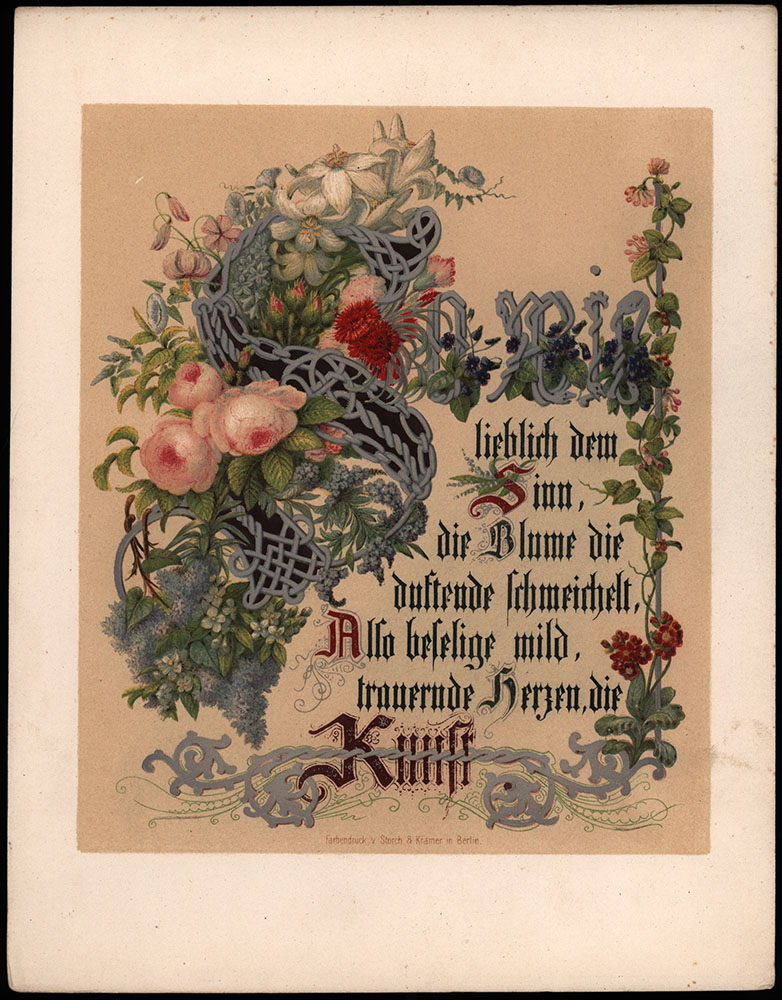 So wie
lieblich dem
Sinn,
die Blume die
duftende schmeichelt,
Also beselige mild,
trauernde Herzen, die
Kunst
Farbendruck v. Storch & Kramer in Berlin.